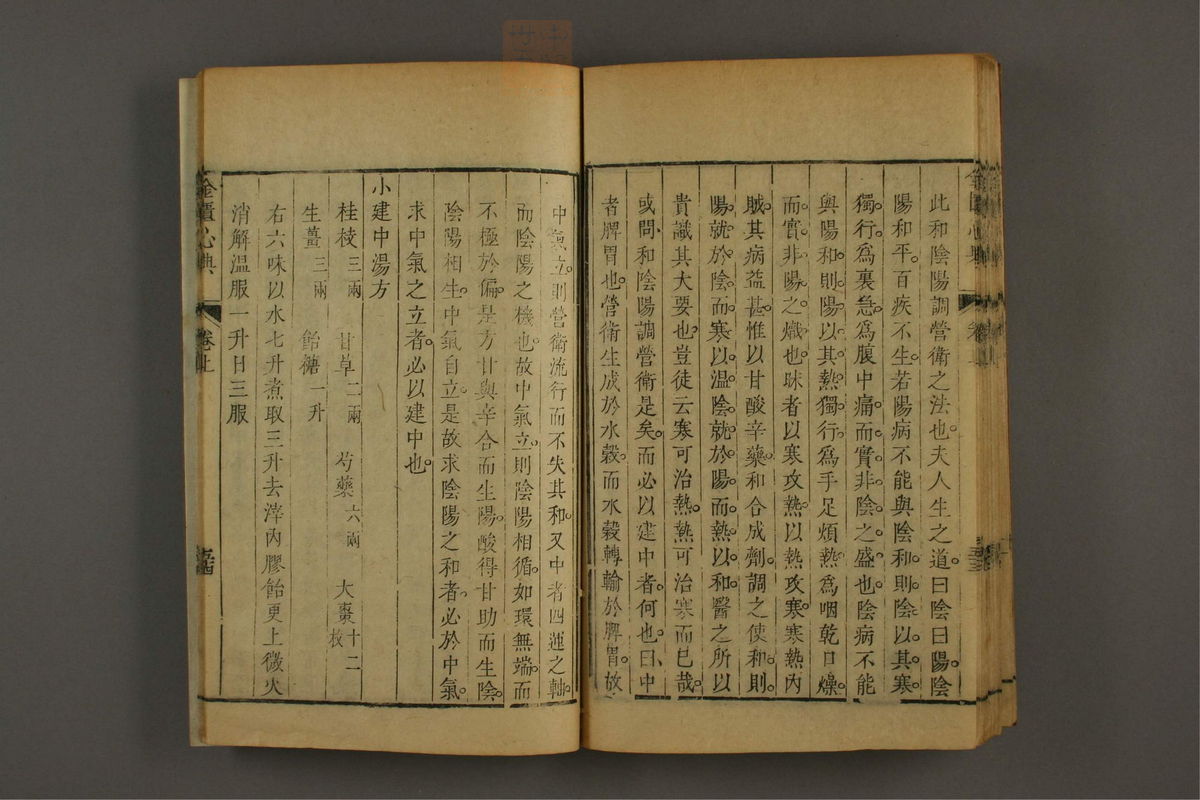 此和陰陽調營衛之法也夫人生之道曰陰曰陽陰
陽和平百疾不生若陽病不能與陰和則陰以其寒
獨行為裏急為腹中痛而實非陰之盛也陰病不能
與陽和則陽以其熱獨行為手足煩熱為咽乾口燥
而實非陽之熾也昧者以寒攻熱以熱攻寒寒熱內
賊其病益甚惟以甘酸辛藥和合成劑調之使和則
陽就於陰而寒以溫陰就於陽而熱以和醫之所以
貴識其大要也豈徒云寒可治熱熱可治寒而已哉
或問和陰陽調營衛是矣而必以建中者何也曰中
者脾胃也營衛生成於水穀而水穀轉輸於脾胃故
中氣立則營衛流行而不失其和又中者四運之軸
而陰陽之機也故中氣立則陰陽相循如環無端而
不極於偏是方甘與辛合而生陽酸得甘助而生陰
陰陽相生中氣自立是故求陰陽之和者必於中氣
求中氣之立者必以建中也
小建中湯方
桂棱三兩 甘草二兩 芍藥六兩 大棗十二枚
生薑三兩 飴糖一升
右六味以水七升煮取三升去滓內膠飴更上微火
消解溫服一升日三服
金匱心典 卷上